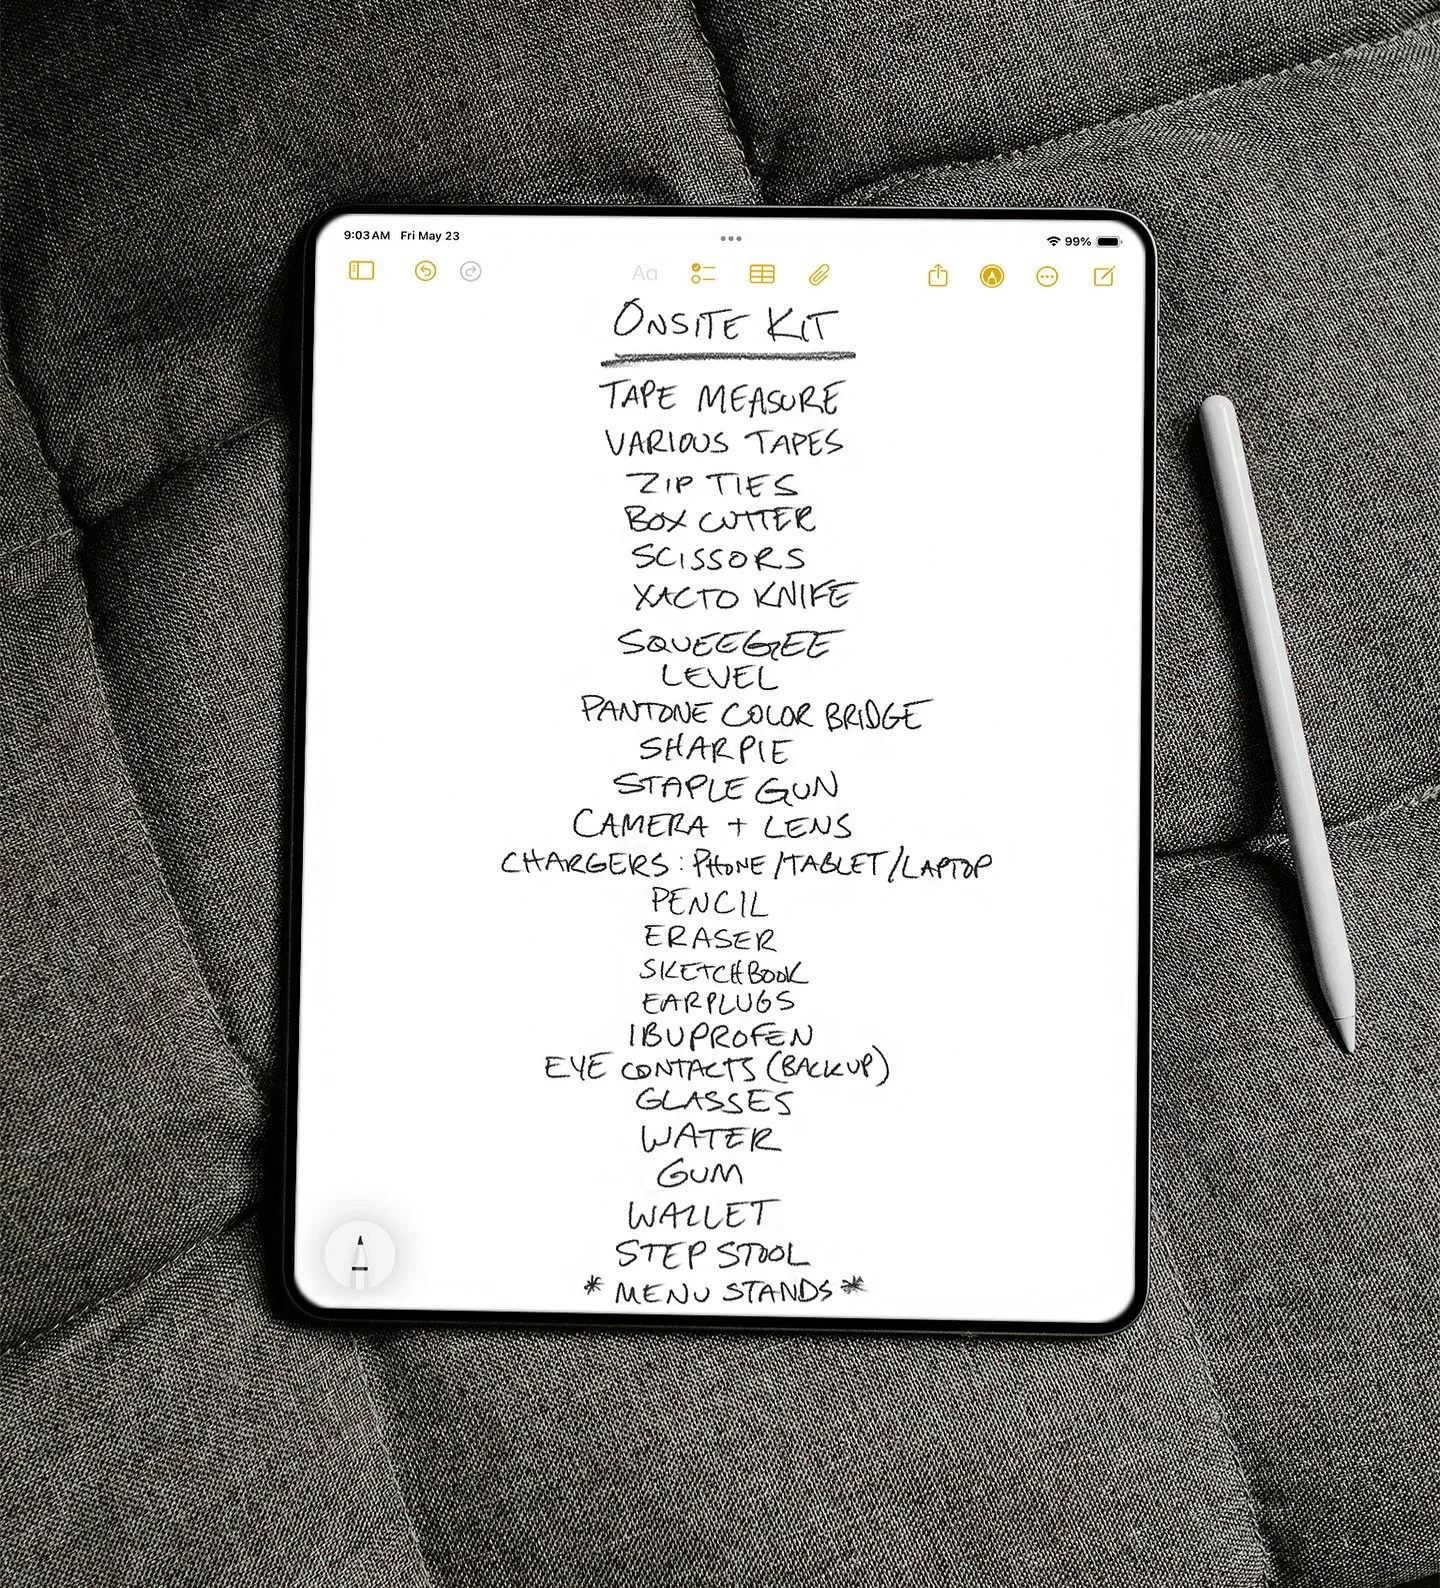 9:03 AM Fri May 23
99%
Aa
ONSITE KIT
TAPE MEASURE
VARIOUS TAPES
ZIP TIES
BOX CUTTER
SCISSORS
XACTO KNIFE
SQUEEGEE
LEVEL
PANTONE COLOR BRIDGE
SHARPIE
STAPLE GUN
CAMERA + LENS
CHARGERS: PHONE/TABLET/LAPTOP
PENCIL
ERASER
SKETCHBOOK
EARPLUGS
IBUPROFEN
EYE CONTACTS (BACKUP)
GLASSES
WATER
GUM
WALLET
STEP STOOL
* MENU STANDS *